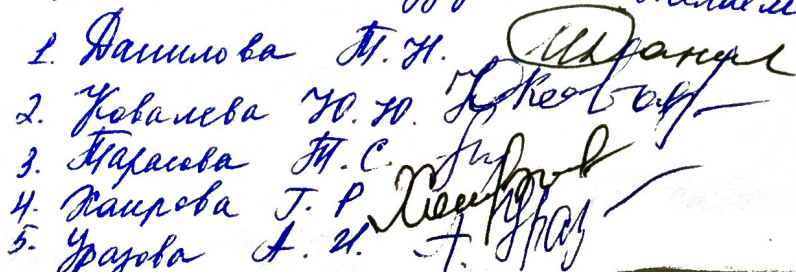 1. Данилова Т. Н.
2. Ковалева Ю. Ю.
3. Тарасова Т. С.
4. Хаирова Г. Р.
5. Уразова А. И. А. Ураз